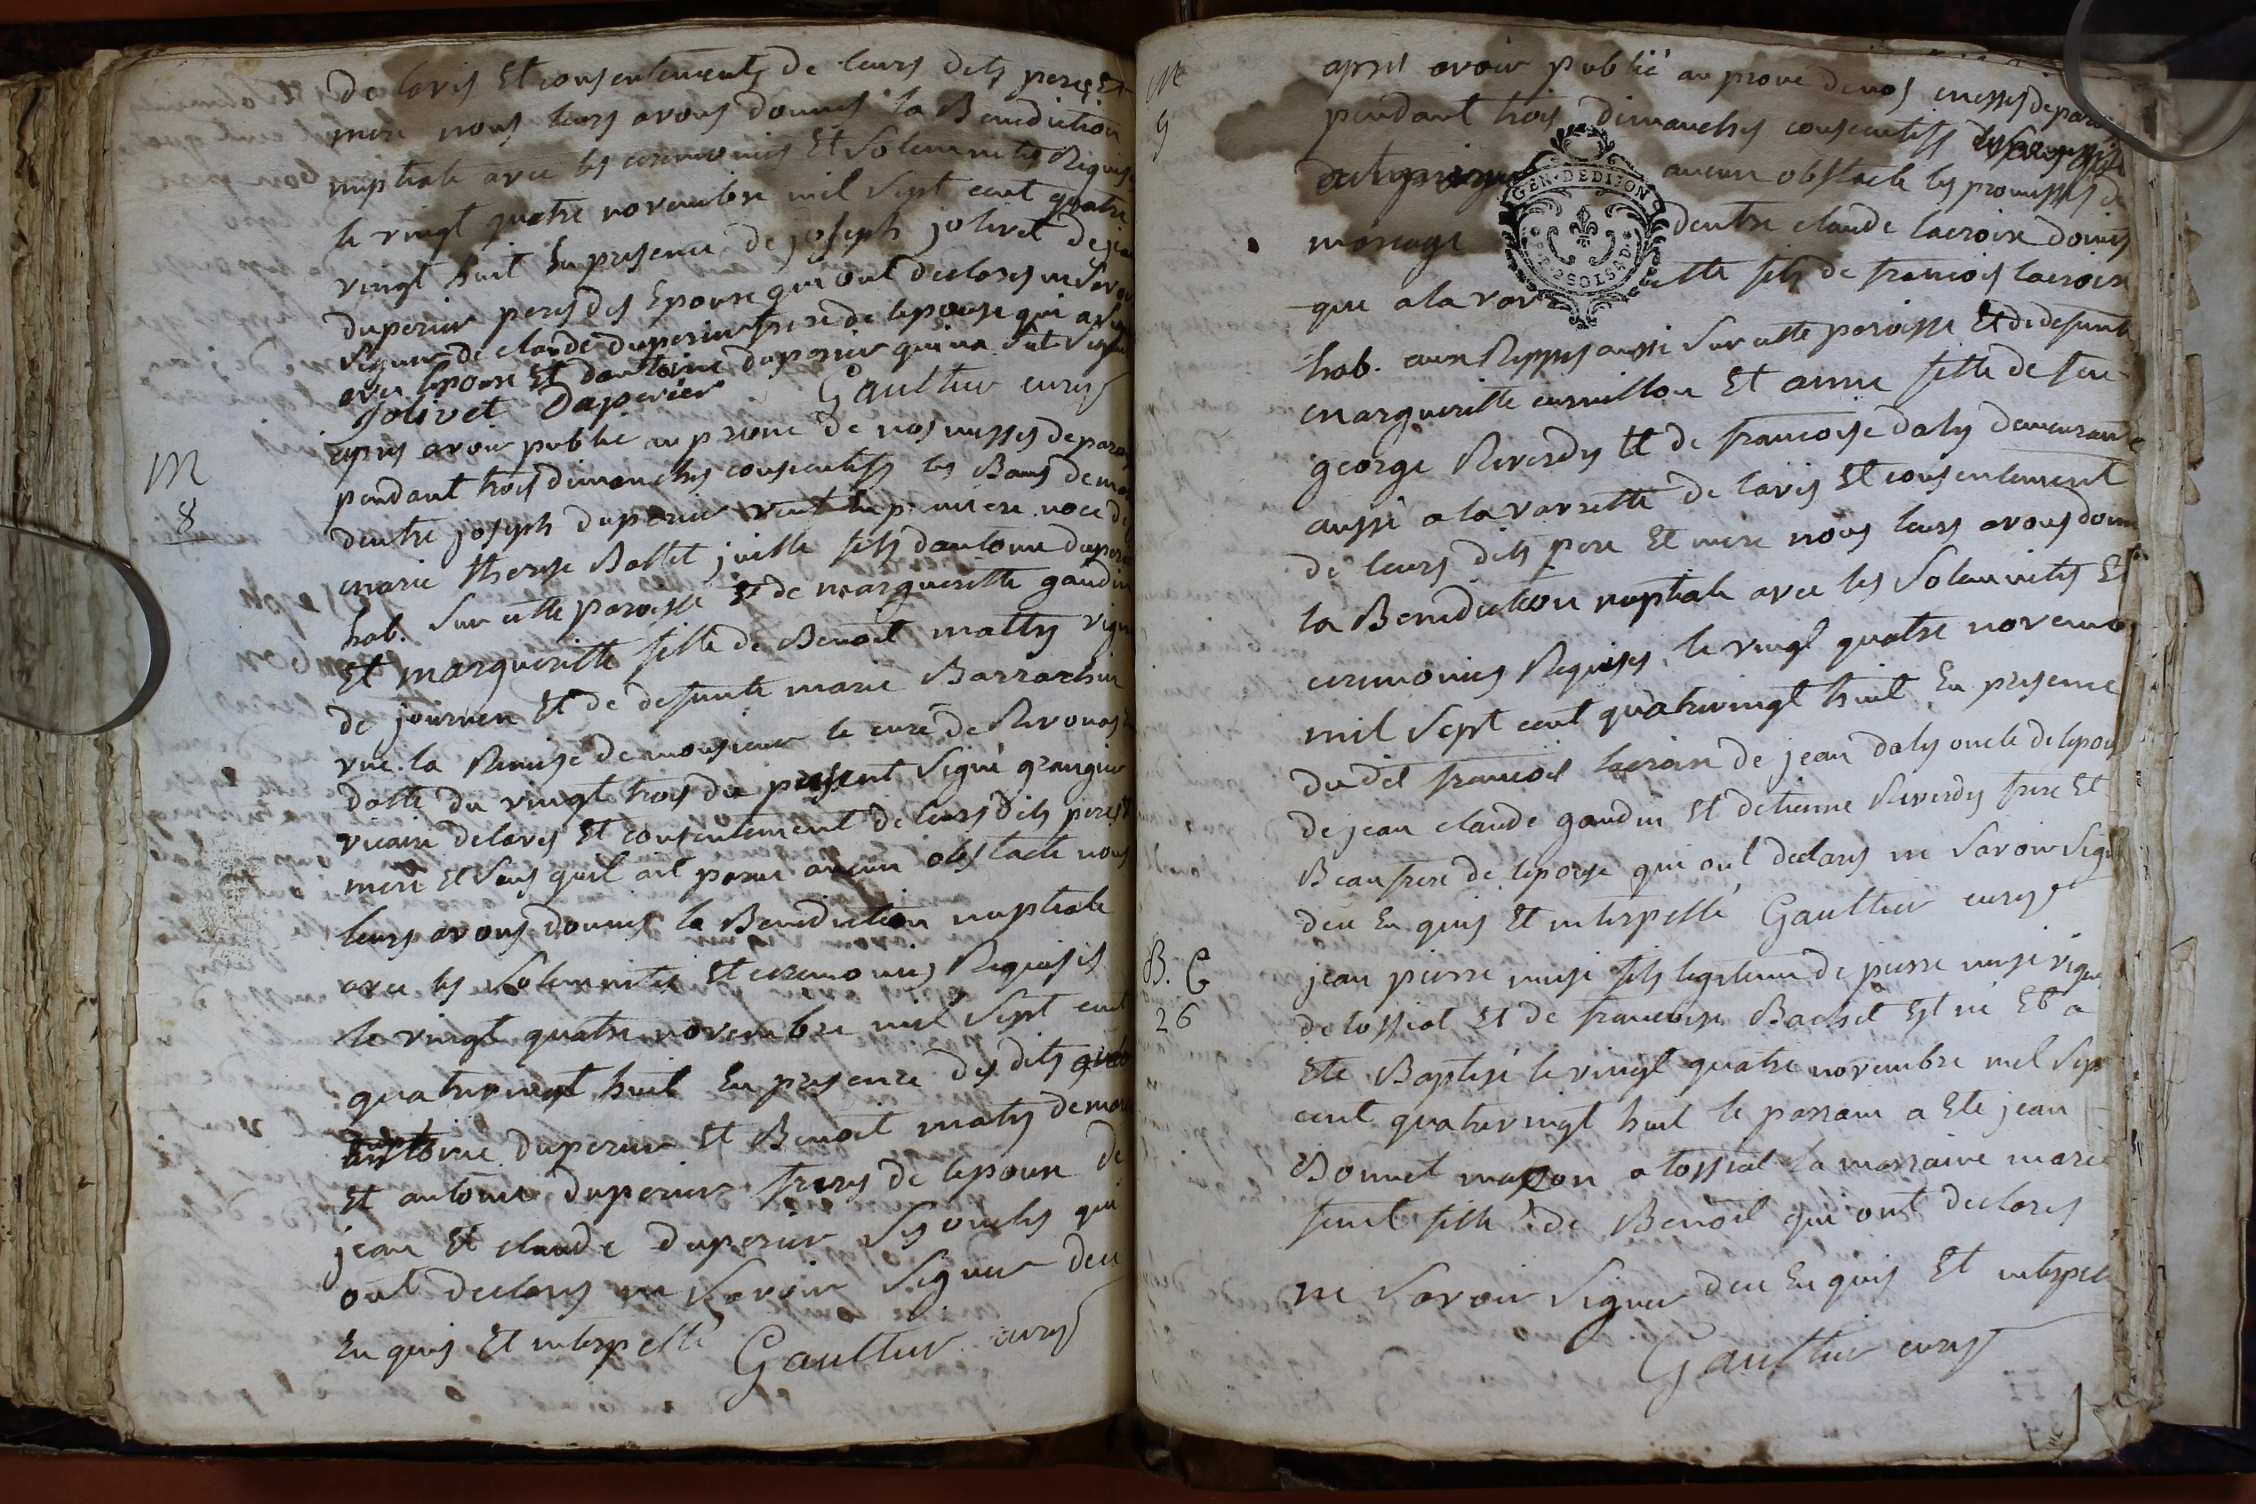 de lavis Et consentements de leurs dits peres Et
mere nous leurs avons donnés la Benediction
nuptiale avec les ceremonies Et Solemnités Requises
le vingt quatre novembre mil sept cent quatre
vingt huit En presence de joseph jolivet de jean
duperier peres des Epoux qui ont declarés ne Savoir
Signer de claude duperier frere de lepouse qui a signé
avec lepoux Et dantoine duperier qui na Sut Signer
Jolivet Duperier Gaultier curé
M
8
apres avoir publié au prone de nos messes de paroisse
pendant trois dimanches consecutifs les Bans de mariage
dentre joseph duperier veuf En premiere noce de
marie therese Bollet juille fils dantoine duperier
hab. Sur cette paroisse Et de margueritte gaudin
Et margueritte fille de Benoit matty vign
de journen Et de defunte marie Barrachin
vue la Remise de monsieur le curé de Revonas en
datte du vingt trois du présent Signé grangier
vicaire de lavis Et consentement de leurs dits peres Et
mere Et Sans quil ait parus aucun obstacle nous
leurs avons donnés la Benediction nuptiale
avec les Solemnités Et ceremonies Requises
le vingt quatre novembre mil Sept cent
quatrevingt huit En presence des dits
antoine duperier Et Benoit maty de
Et antoine duperier freres de lepoux de
jean Et claude duperier Ses oncles qui
ont declarés ne Savoir Signer deu
En quis Et interpellé Gaultier curé
M
9
apres avoir publié au prone de nos messes de paroisse
pendant trois dimanches consecutifs
aucun obstacle les promesses de
mariage dentre claude lacroix domes
que a la vavrette fils de francois lacroix
hab. aux Rippes aussi Sur cette paroisse Et de defunte
margueritte curnillon Et anne fille de feu
george Reverdy Et de francoise daly demeurante
aussi a la vavrette de lavis Et consentement
de leurs dits pere Et mere nous leurs avons donné
la Benediction nuptiale avec les Solemnités Et
ceremonies Requises le vingt quatre novembre
mil Sept cent quatrevingt huit En presence
du dit francois lacroix de jean daly oncle de lepouse
de jean claude gaudin Et detienne Reverdy frere Et
Beaufrere de lepouse qui ont declarés ne Savoir Signer
deu En quis Et interpellé Gaultier curé
B. G
26
jean pierre muzi fils legitime de pierre muzi vign
de tossiat Et de francoise Bachet Est né Et a
Eté Baptisé le vingt quatre novembre mil Sept
cent quatrevingt huit le parrain a Eté jean
Bonnet maçon a tossiat la marraine marie
fille de Benoit qui ont declarés
ne Savoir Signer deu En quis Et interpellé
Gaultier curé
GEN. DE DIJON